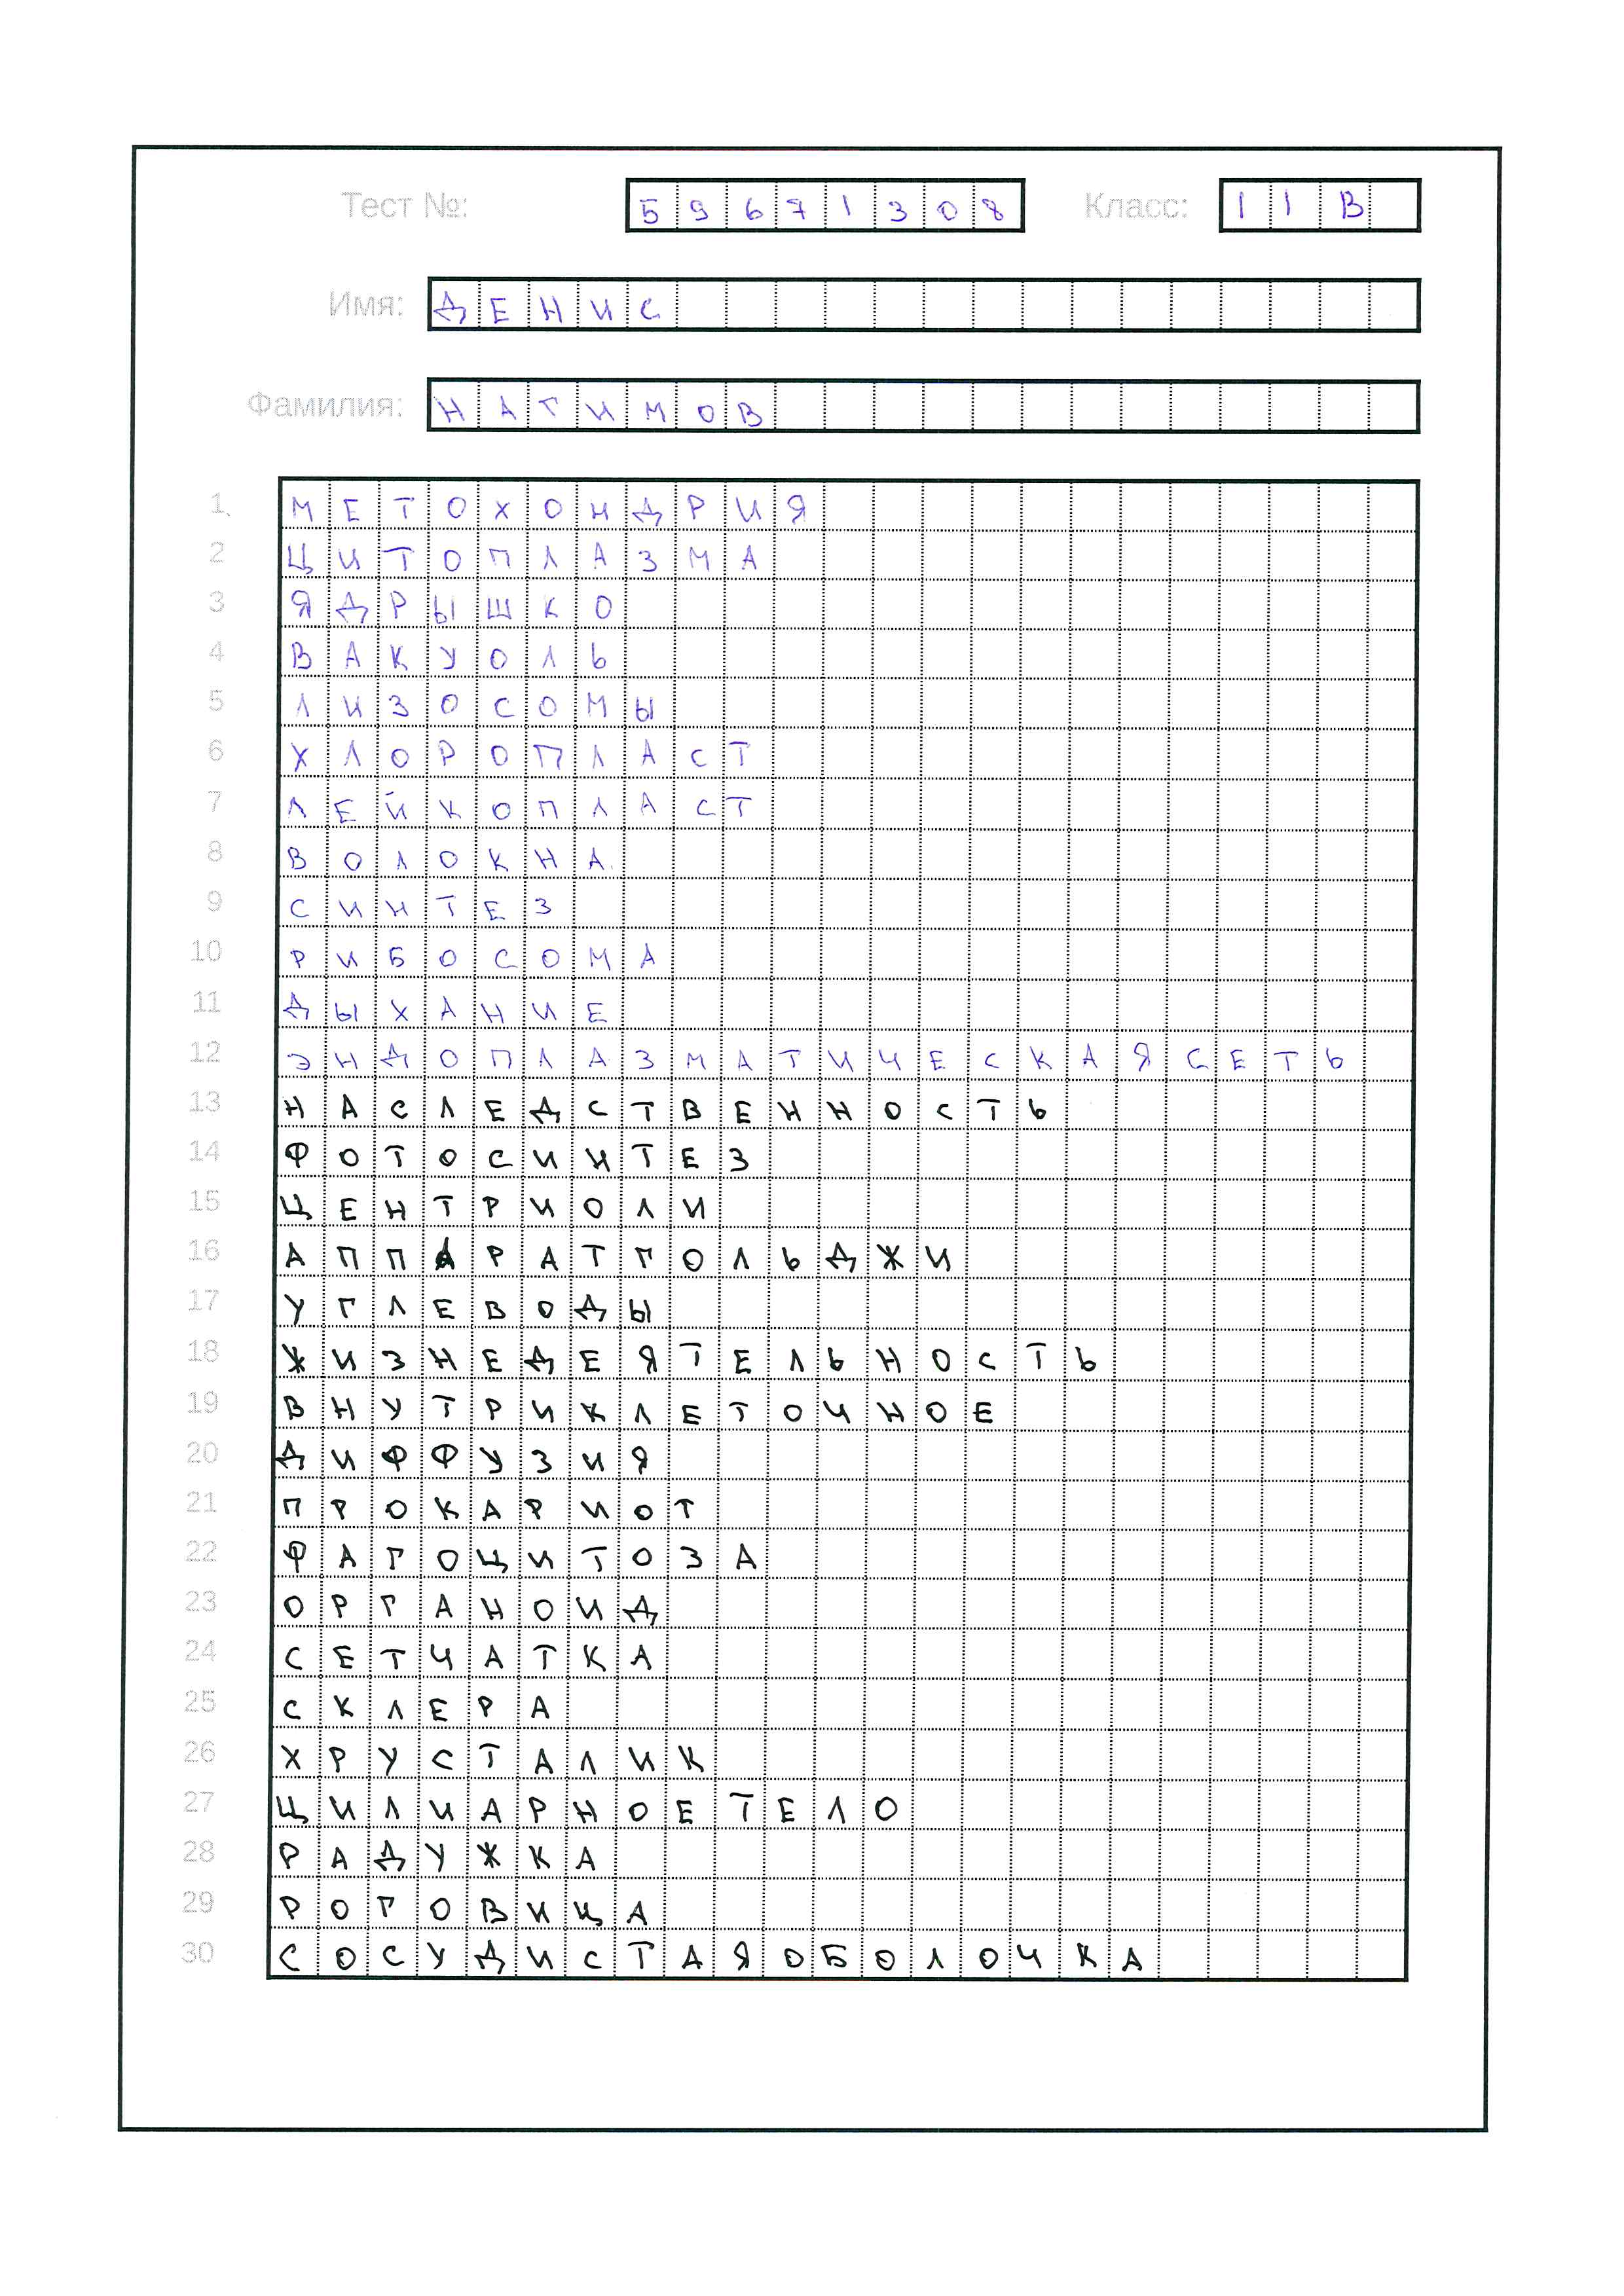 Тест №: 59671308 Класс: 11В
Имя: ДЕНИС
Фамилия: НАГИМОВ
1. МЕТОХОНДРИЯ
2 ЦИТОПЛАЗМА
3 ЯДРЫШКО
4 ВАКУОЛЬ
5 ЛИЗОСОМЫ
6 ХЛОРОПЛАСТ
7 ЛЕЙКОПЛАСТ
8 ВОЛОКНА
9 СИНТЕЗ
10 РИБОСОМА
11 ДЫХАНИЕ
12 ЭНДОПЛАЗМАТИЧЕСКАЯСЕТЬ
13 НАСЛЕДСТВЕННОСТЬ
14 ФОТОСИНТЕЗ
15 ЦЕНТРИОЛИ
16 АППАРАТГОЛЬДЖИ
17 УГЛЕВОДЫ
18 ЖИЗНЕДЕЯТЕЛЬНОСТЬ
19 ВНУТРИКЛЕТОЧНОЕ
20 ДИФФУЗИЯ
21 ПРОКАРИОТ
22 ФАГОЦИТОЗА
23 ОРГАНОИД
24 СЕТЧАТКА
25 СКЛЕРА
26 ХРУСТАЛИК
27 ЦИЛИАРНОЕТЕЛО
28 РАДУЖКА
29 РОГОВИЦА
30 СОСУДИСТАЯОБОЛОЧКА